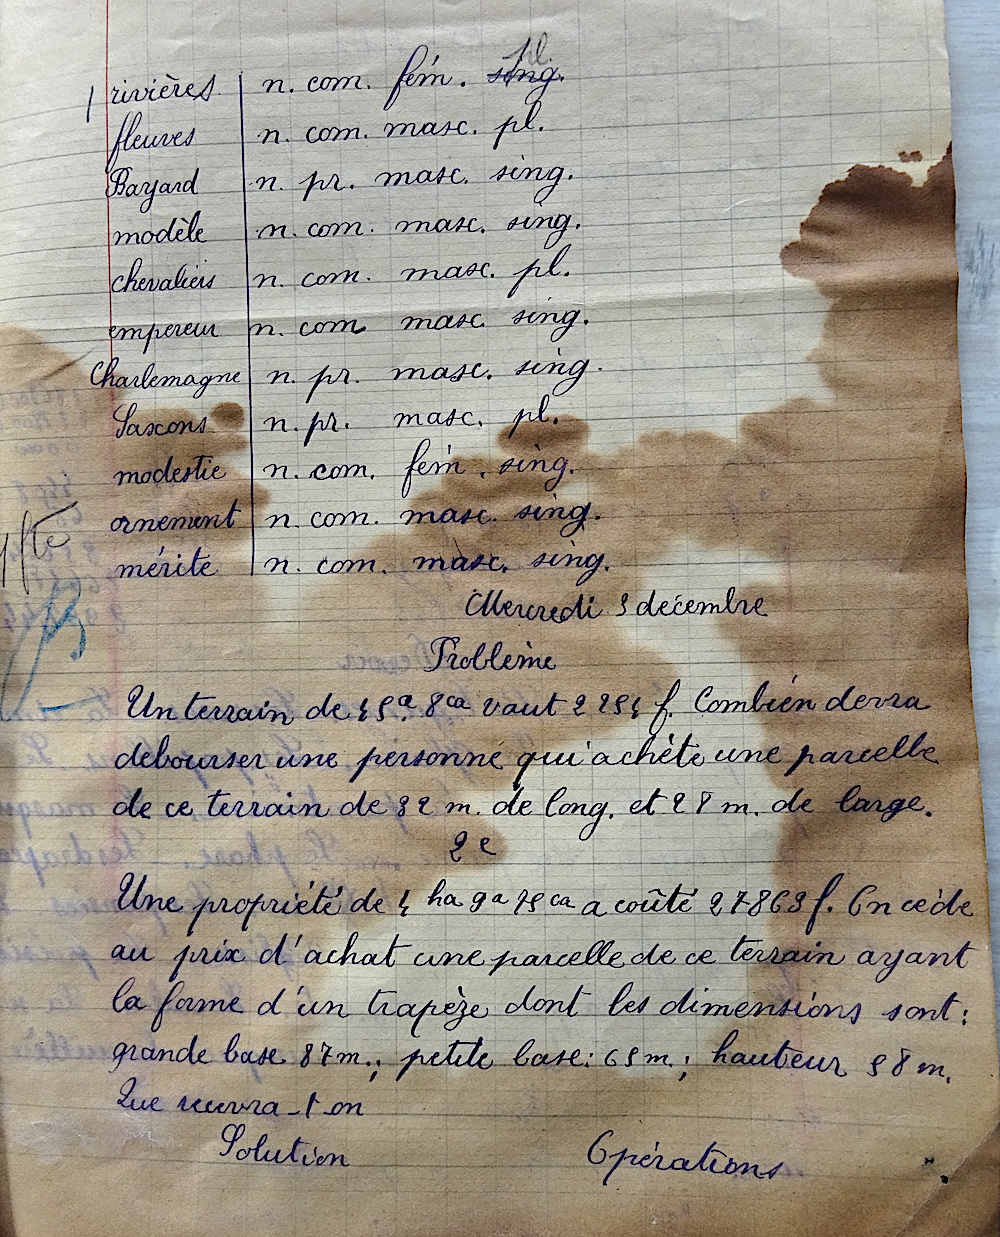 rivières n. com. fém. sing. pl.
fleuves n. com. masc. pl.
Bayard n. pr. masc. sing.
modèle n. com. masc. sing.
chevaliers n. com. masc. pl.
empereur n. com masc. sing.
Charlemagne n. pr. masc. sing.
Saxons n. pr. masc. pl.
modestie n. com. fém. sing.
ornement n. com. masc. sing.
1 fte
mérite n. com. masc. sing.
B
Mercredi 3 décembre
Problème
Un terrain de 45a. 8ca vaut 2 254 f. Combien devra
débourser une personne qui achète une parcelle
de ce terrain de 32 m. de long. et 28 m. de large.
2e
Une propriété de 4 ha 9a 75ca a coûté 27863 f. On cède
au prix d'achat une parcelle de ce terrain ayant
la forme d'un trapèze dont les dimensions sont:
grande base 87m.; petite base: 65m.; hauteur 58 m.
Que recevra-t-on
Solution Opérations